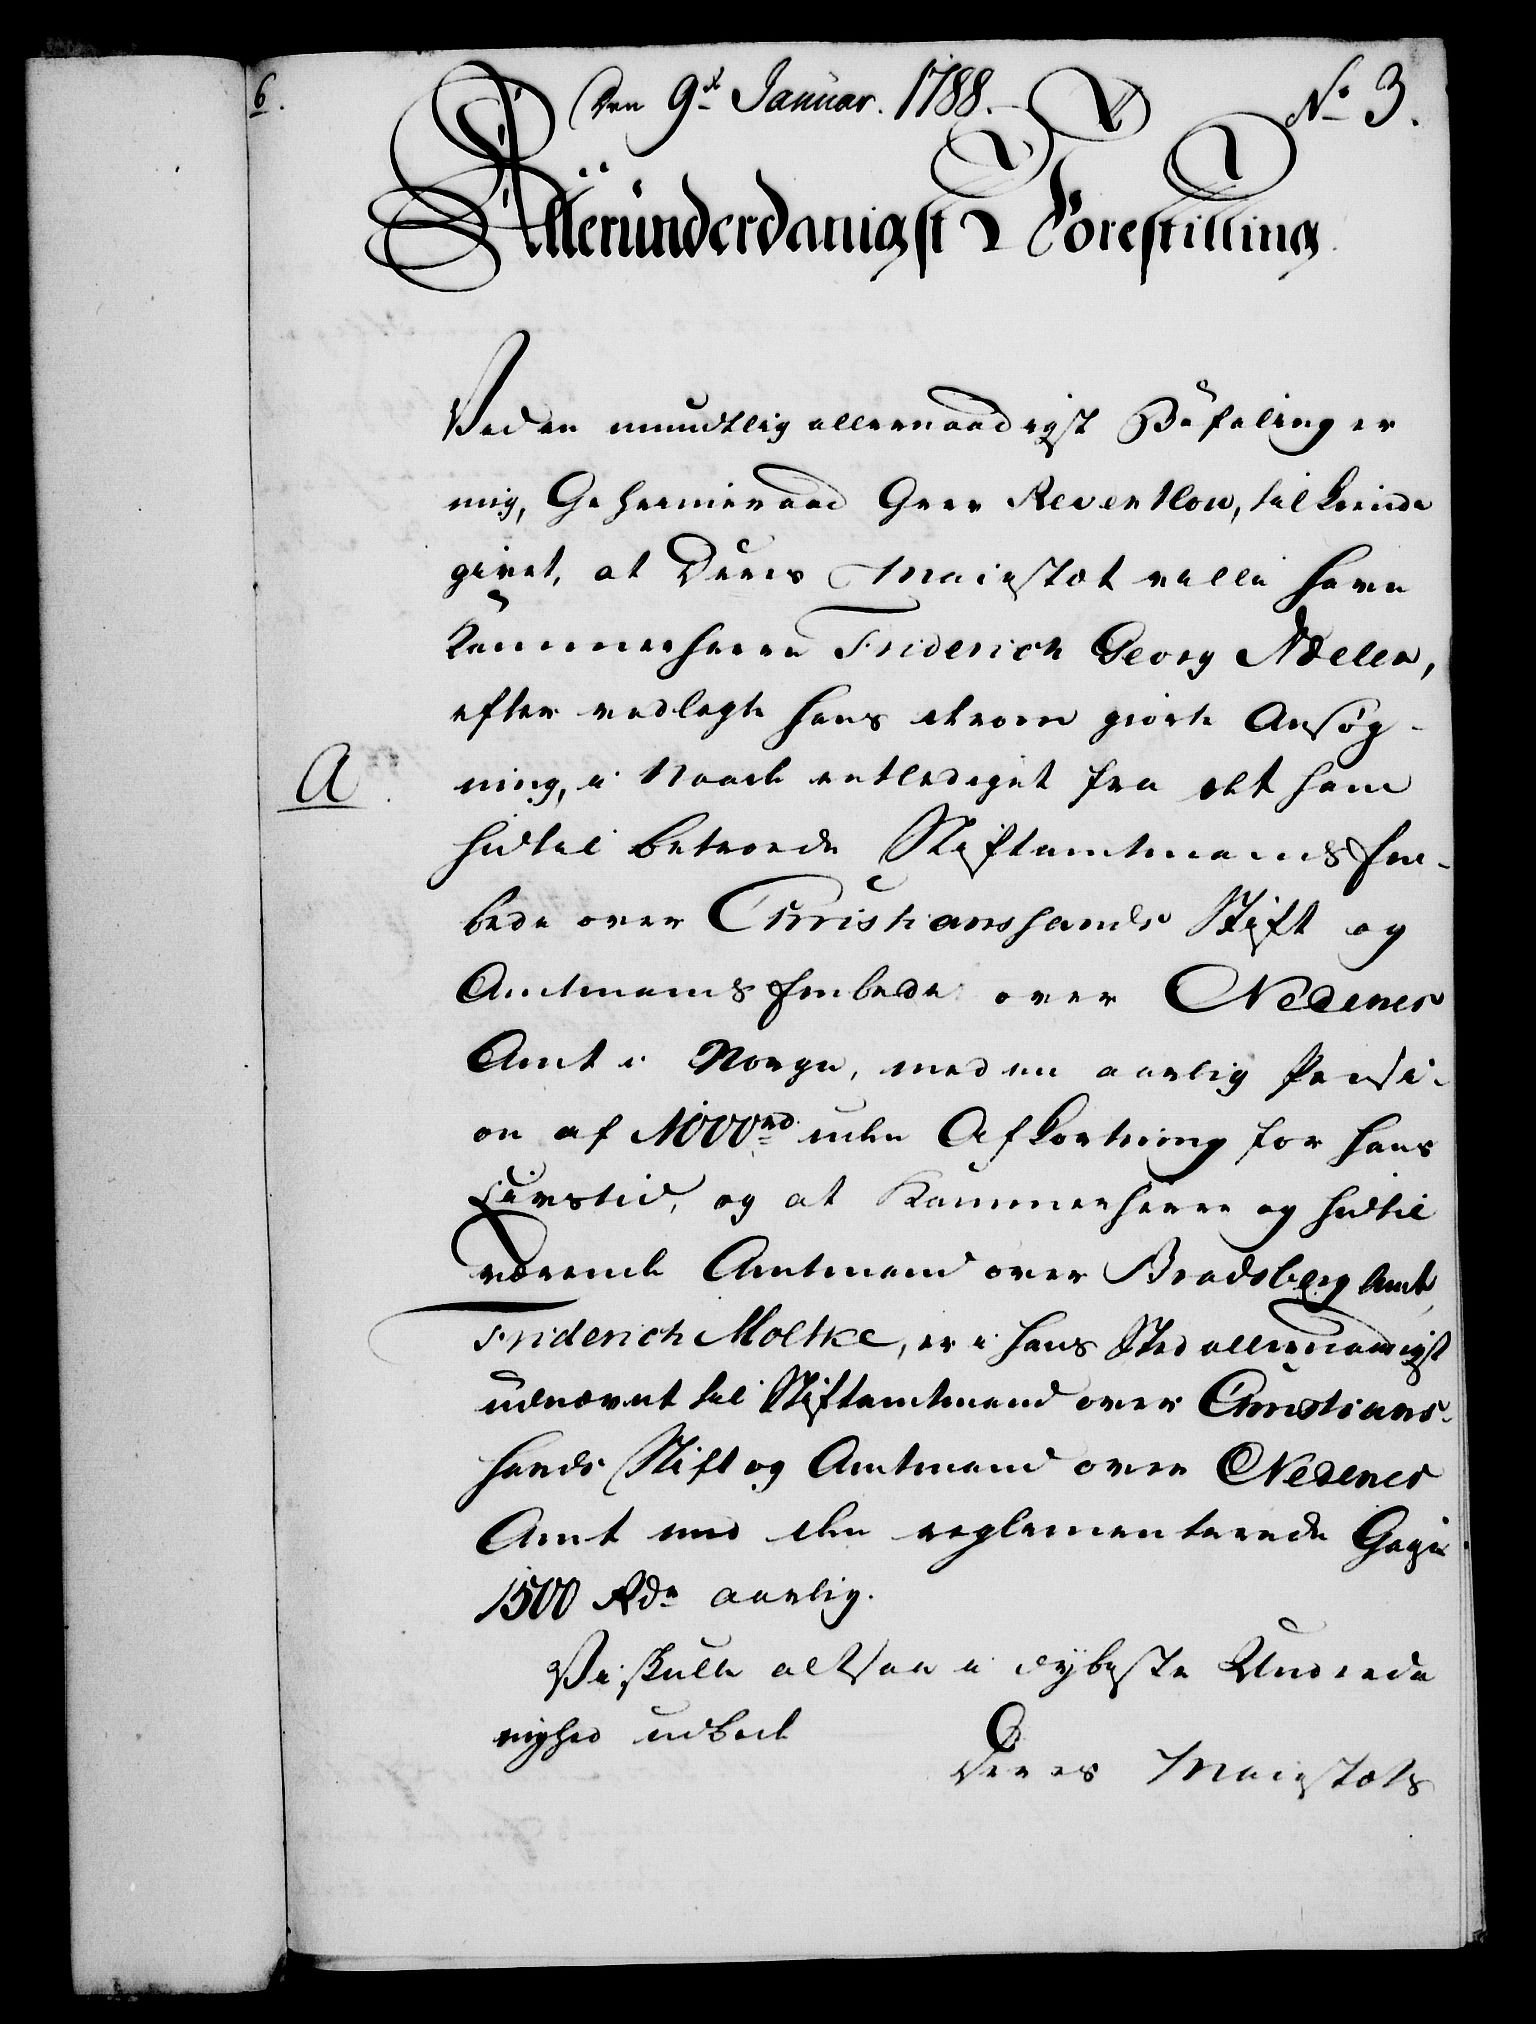 6.
Den 9de Januar. 1788.
No 3.
Allerunderdanigst Forestilling.
Ved en mundtlig allernaadigst Befaling er
mig, Geheimeraad Grev Reventlow, tilkiende
givet, at Deres Majestæt ville have
Kammerherre Friderich Georg Adeler,
efter vedlagte hans derom giorte Ansøg-
A.
ning, i Naade entlediget fra det ham
hidtil betroede Stiftamtmands Em-
bede over Christianssands Stift og
Amtmands Embede over Nedenes
Amt i Norge, med en aarlig Pensi-
on af 1000rd uden Afkortning for hans
Livstid, og at Kammerherre og hidtil
værende Amtmand over Bradsberg Amt,
Friderich Moltke, er i hans Sted allernaadigst
udnævnt til Stiftamtmand over Christians-
sands Stift og Amtmand over Nedenes
Amt med den reglementerede Gage
1500 Rdr aarlig.
Vi skulle altsaa i dybeste Underda
nighed udbede
Deres Majestæts